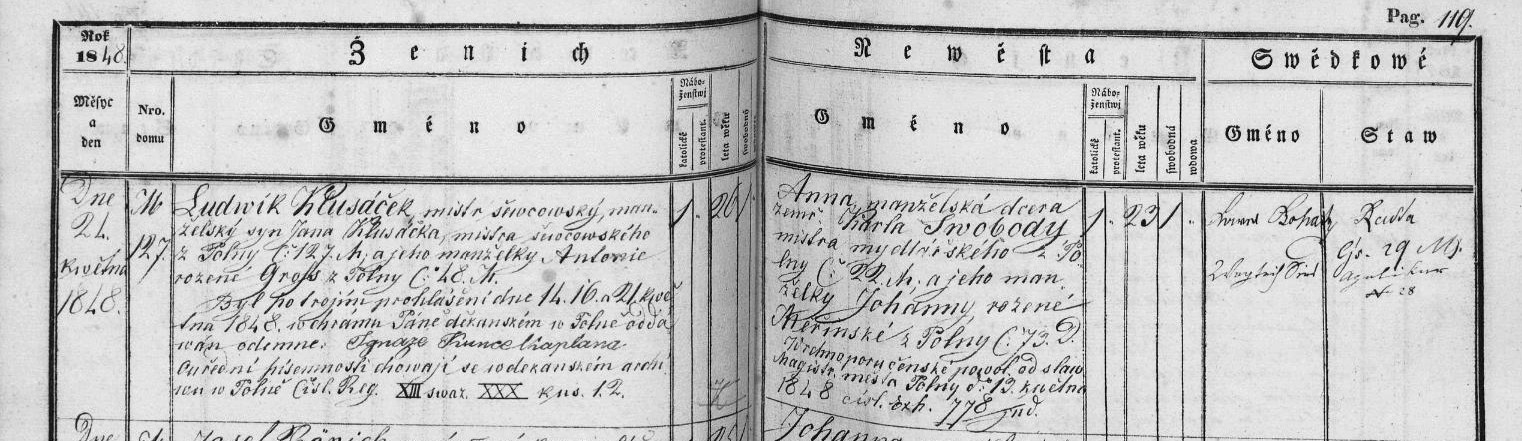 Pag. 119.
Rok
1848.
Ženich
Newěsta
Swědkowé
Měsyc
a
den
Nro.
domu
Gméno
Nábo-
ženstwj
katolické
protestant.
leta wěku
swobodný
Gméno
Nábo-
ženstwj
katolické
protestant.
leta wěku
swobodná
wdowa
Gméno
Staw
Dne
21.
května
1848.
M
127.
Ludwík Klusáček, mistr šewcowský, man-
želský syn Jana Klusáčka, mistra šewcowského
z Polny Č: 127. M. a jeho manželky Antonie
rozené Groß z Polny Č: 48. M.
Byl po trojím prohlášení dne 14. 16. a 21. kwě
tna 1848. w chrámu Páně děkanském w Polně oddá
wán odemne: Ignaze Kunce Kaplana
a úřední písemnosti chowají se w děkanském archi
wu w Polně Čísl. Reg. XIII swaz. XXX kus. 12.
1 . 26 1
Anna, manželská dcera
zemř. Karla Swobody
mistra mydlářského z Po
lny Č: 22. M. a jeho man
želky Johanny, rozené
z Polny Č. 73. D.
powol. od slaw.
Magistr. města Polny d: 13. května
1848 čísl. exh. 778 jud.
1 . 23 1 .
Radta
Čs. 29 M.
N 28
Dne
Johanna